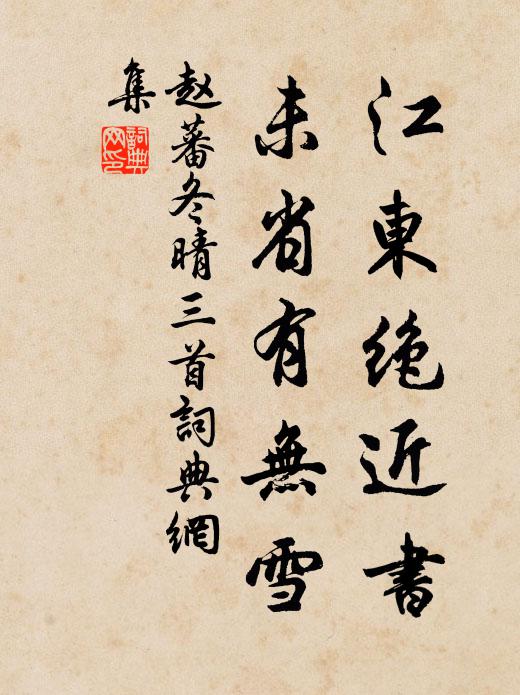 江東絶近書
未省有無雪
赵蕃冬晴三首詞典網
集
詞典網印